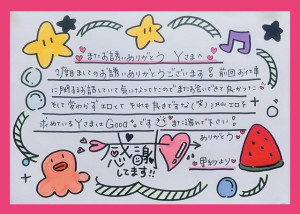 またお誘いありがとう Yさまへ
2度目ましてのお誘いありがとうございます! 前回お仕事
に関するお話していて気になってたのでまたお会いできて良かった
そして変わらずエロくて それも良きですな(笑)これからもエロを
求めているYさまは Good です また遊んで下さい!
感謝
してます!!
ありがとう
より